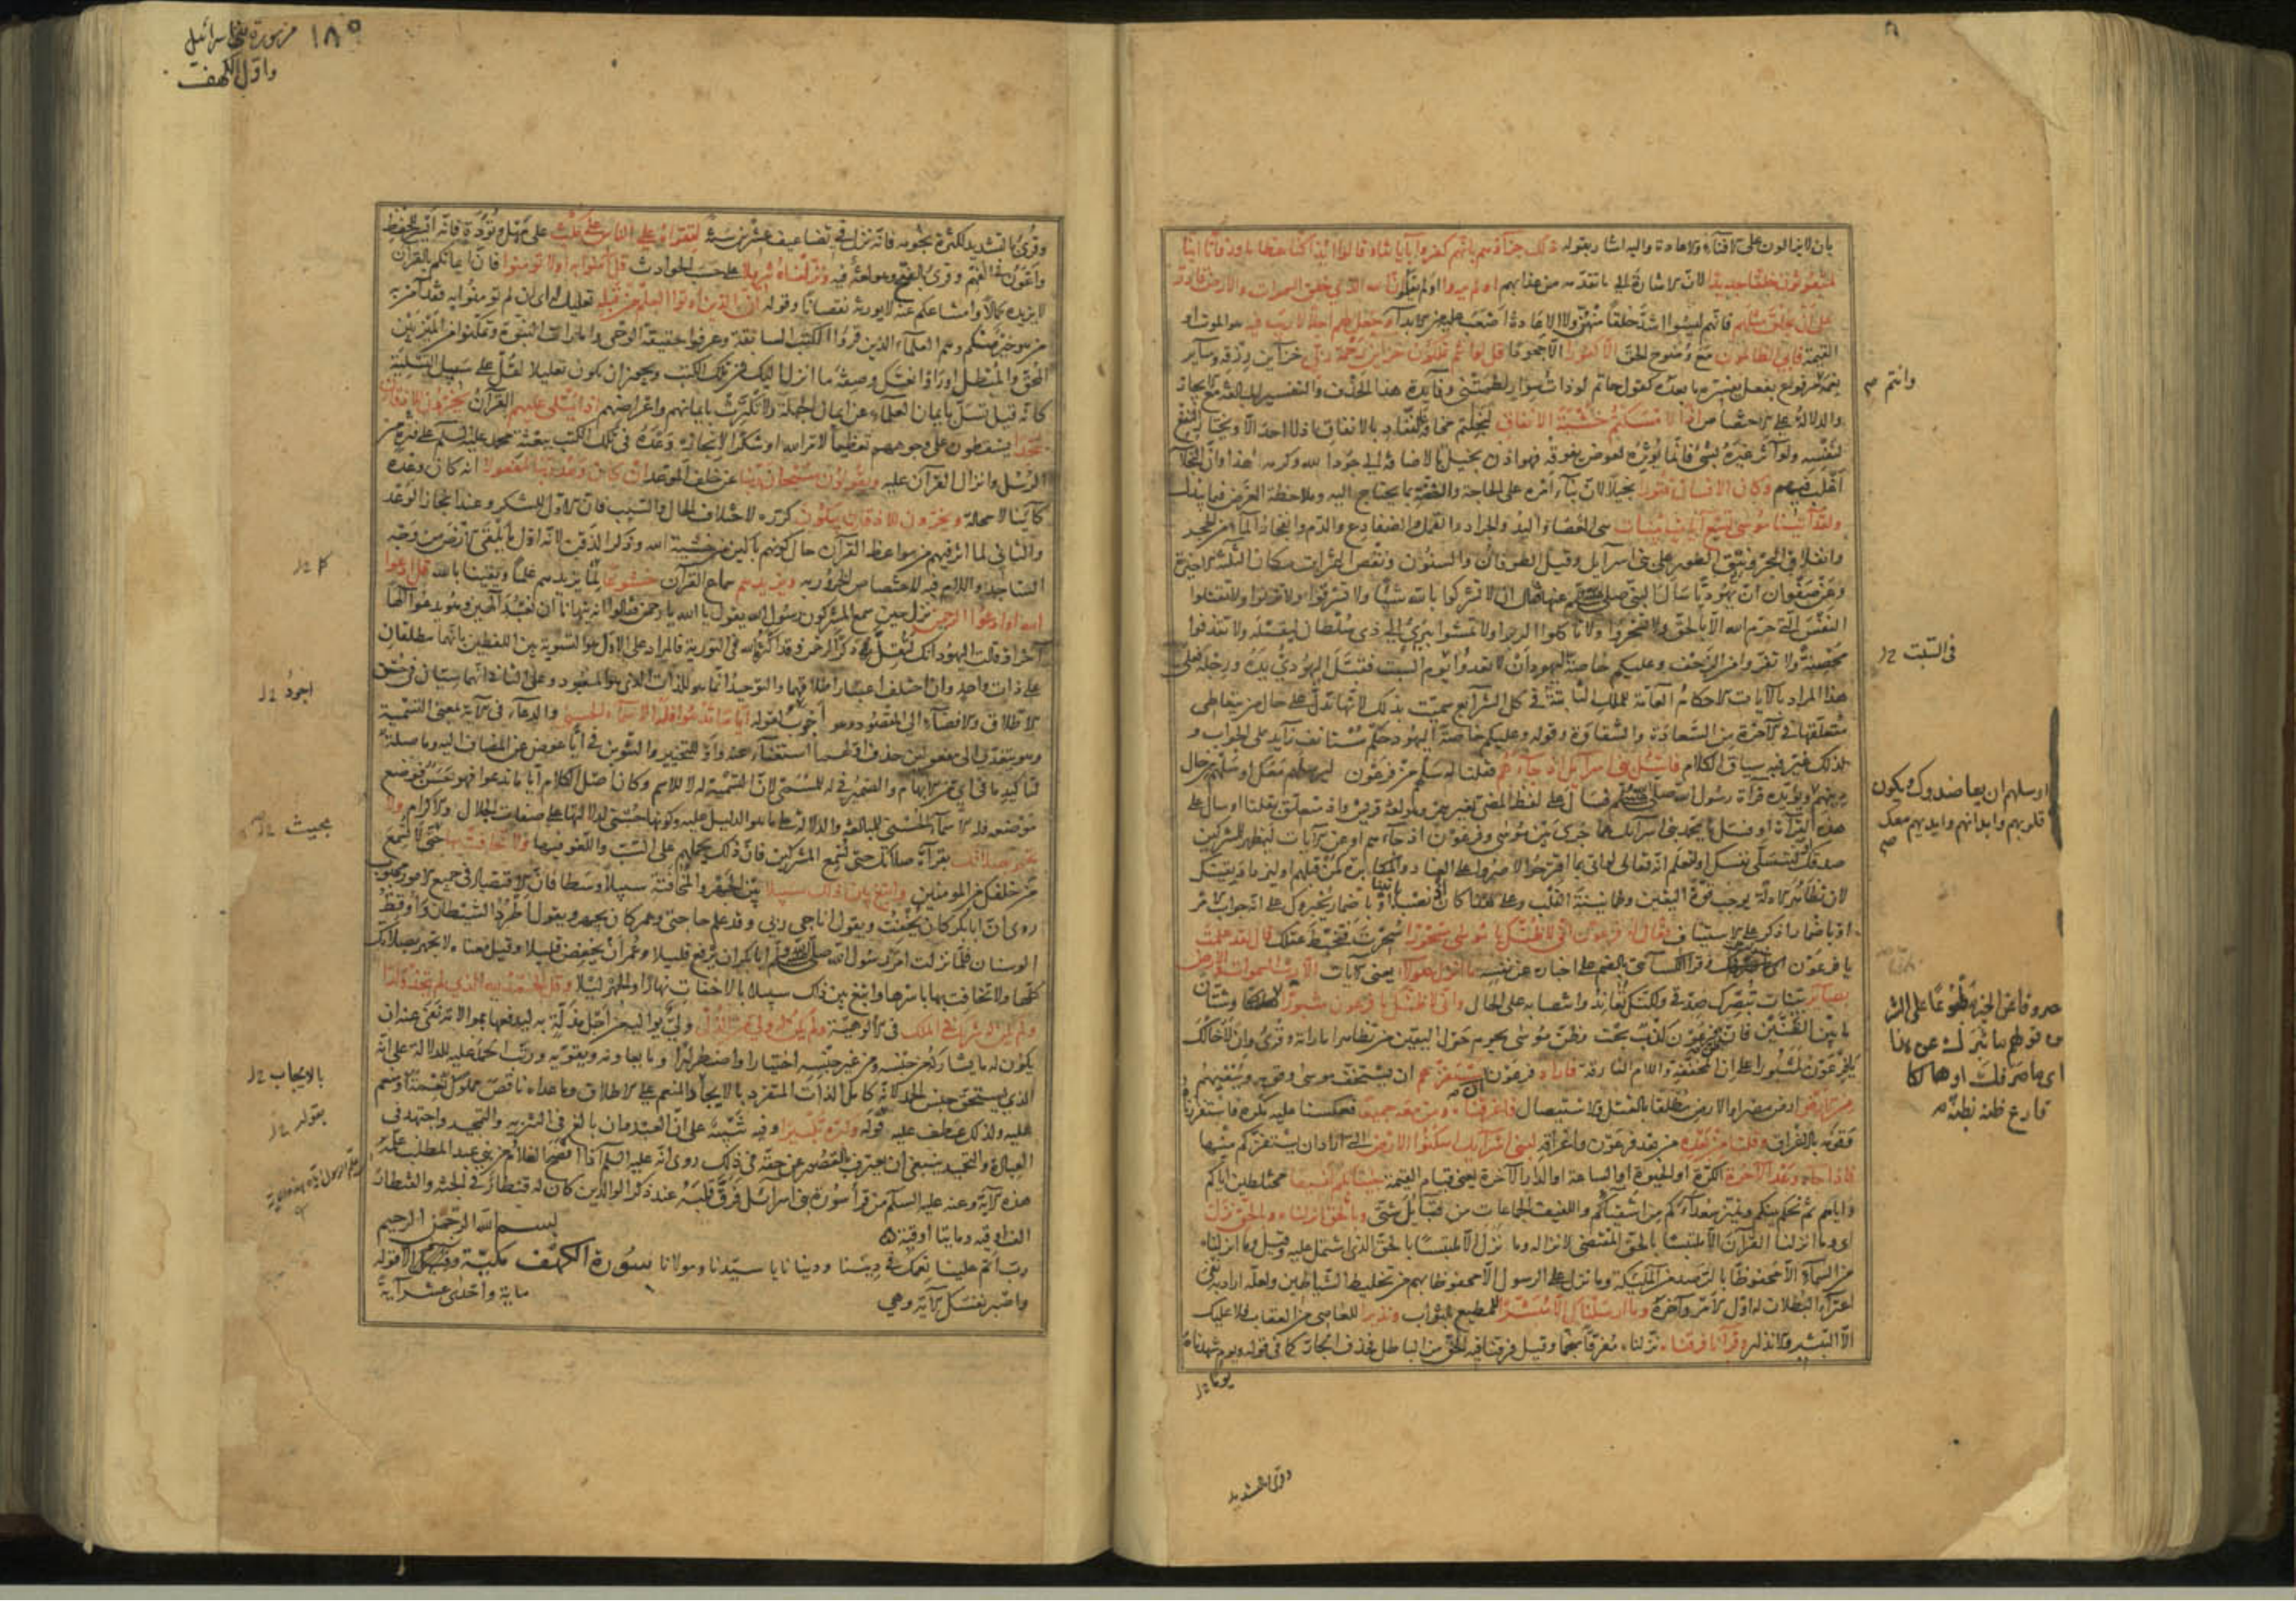 بان لا يزالون على الافناء والاعادة واليه اشار بقوله ذلك جزاؤهم بانهم كفروا باياتنا وقالوا ائذا كنا عظاما ورفاتا ائنا
لمبعوثون خلقا جديدا لان الاشارة الى ما تقدم من عذابهم اولم يروا اولم يعلموا ان الله الذي خلق السموات والارض قادر
على ان يخلق مثلهم فانهم ليسوا اشد خلقا منهن ولا الاعادة اصعب عليه من الابداء وجعل لهم اجلا لا ريب فيه هو الموت او
القيمة فابى الظالمون مع وضوح الحق الا كفورا الا جحودا قل لو انتم تملكون خزائن رحمة ربي خزاين رزقه وساير
نعمه مرفوع بفعل يفسره ما بعده كقول حاتم لو ذات سوار لطمتني وفايدة هذا الحذف والتفسير المبالغة مع الايجاز
والدلالة على الاختصاص اذا لامسكتم خشية الانفاق لبخلتم مخافة النفاد بالانفاق اذ لا احد الا ويختار النفع
لنفسه ولو آثر غيره بشئ فانما يؤثره لعوض يفوقه فهو اذن بخيل بالاضافة الى جود الله وكرمه هذا وان البخلاء
اغلب فيهم وكان الانسان قتورا بخيلا لان بناء امره على الحاجة والضنة بما يحتاج اليه وملاحظة العوض فيما يبذل
ولقد آتينا موسى تسع آيات بينات هي العصا واليد والجراد والقمل والضفادع والدم وانفجار الماء من الحجر
وانفلاق البحر ونتق الطور على بني اسرآيل وقيل الطوفان والسنون ونقص الثمرات مكان الثلثة الاخيرة
وعن صفوان ان يهوديا سال النبي صلى الله عليه وسلم عنها فقال ان لا تشركوا بالله شيئا ولا تسرقوا ولا تزنوا ولا تقتلوا
النفس التي حرم الله الا بالحق ولا تسحروا ولا تاكلوا الربوا ولا تمشوا ببرئ الى ذي سلطان ليقتله ولا تقذفوا
محصنة ولا تفروا من الزحف وعليكم خاصة اليهود ان لا تعدوا يوم السبت فقبل اليهودي يده ورجله فعلى
هذا المراد بالآيات الاحكام العامة للملل الثابتة في كل الشرآيع سميت بذلك لانها تدل على حال من يتعاطى
متعلقها في الآخرة من السعادة والشقاوة وقوله وعليكم خاصة اليهود حكم مستانف زآيد على الجواب و
لذلك غير فيه سياق الكلام فاسئل بني اسرآيل اذ جآءهم فقلنا له سلهم من فرعون ليرسلهم معك او سلهم عن حال
دينهم ويؤيده قرآة رسول الله صلى الله عليه وسلم فسال على لفظ المضي بغير همز وهو لغة قريش واذ متعلق بقلنا او سال على
هذه القرآة او فسئل يا محمد بني اسرآيل عما جرى بين موسى وفرعون اذ جآءهم او عن الآيات ليظهر للمشركين
صدقك او لتتسلى نفسك او لتعلم انه تعالى لو اتى بما اقترحوا لاصروا على العناد والمكابرة كمن قبلهم او ليزداد يقينك
لان تظاهر الادلة يوجب قوة اليقين وطمانينة القلب وعلى هذا كان اذ نصبا بآتينا او باضمار يخبروك على انه جواب الامر
او باضمار اذكر على الاستيناف فقال له فرعون اني لاظنك يا موسى مسحورا سحرت فتخبط عقلك قال لقد علمت
يا فرعون وقرا الكسآئي بالضم على اخباره عن نفسه ما انزل هؤلاء يعني الآيات الا رب السموات والارض
بصآئر بينات تبصرك صدقي ولكنك تعاند وانتصابه على الحال واني لاظنك يا فرعون مثبورا
ما بين الظنين فان ظن فرعون كذب بحت وظن موسى يحوم حول اليقين من تظاهر اماراته وقرئ وان اخالك
يا فرعون لمثبورا على ان المخففة واللام الفارقة فاراد فرعون ان يستفزهم ان يستخف موسى وقومه وينفيهم
من الارض ارض مصر او الارض مطلقا بالقتل والاستيصال فاغرقناه ومن معه جميعا فعكسنا عليه مكره فاستفززناه
وقومه بالاغراق وقلنا من بعده من بعد فرعون واغراقه لبني اسرآيل اسكنوا الارض التي اراد ان يستفزكم منها
فاذا جاء وعد الآخرة الكرة او الحيوة او الساعة او الدار الآخرة يعني قيام القيمة جئنا بكم لفيفا مختلطين اياكم
واياهم ثم نحكم بينكم ونميز سعدآءكم من اشقيآئكم واللفيف الجماعات من قبايل شتى وبالحق انزلناه وبالحق نزل
اي وما انزلنا القرآن الا ملتبسا بالحق المقتضي لانزاله وما نزل الا ملتبسا بالحق الذي اشتمل عليه وقيل وما انزلناه
من السمآء الا محفوظا بالرصد من الملئكة وما نزل على الرسول الا محفوظا بهم من تخليط الشياطين ولعله اراد به نفي
اعترآء البطلان له اول الامر وآخره وما ارسلناك الا مبشرا للمطيع بالثواب ونذيرا للعاصي من العقاب فلا عليك
الا التبشير والانذار وقرآنا فرقناه نزلناه مفرقا منجما وقيل فرقنا فيه الحق من الباطل فحذف الجار كما في قوله ويوم شهدناه
وقرئ بالتشديد
وانتم
في السبت
او سلهم ان يعاضدوك ويكون
قلوبهم وابدانهم وايديهم معك
مصروفا عن الخير مطبوعا على الشر
من قولهم ما ثبرك عن هذا
اي ما صرفك او هالكا
قارع ظنه بظنه
١٨٥ من سورة بني اسرائيل
واول الكهف
وقرئ بالتشديد لكثرة نجومه فانه نزل في تضاعيف عشرين سنة لتقراه على الناس على مكث على مهل وتؤدة فانه ايسر للحفظ
واعون في الفهم وقرئ بالفتح وهو لغة فيه ونزلناه تنزيلا على حسب الحوادث قل آمنوا به او لا تؤمنوا فان ايمانكم بالقرآن
لا يزيده كمالا وامتناعكم عنه لا يورثه نقصانا وقوله ان الذين اوتوا العلم من قبله تعليل له اي ان لم تؤمنوا به فقد آمن به
من هو خير منكم وهم العلمآء الذين قرؤا الكتب السابقة وعرفوا حقيقة الوحي وامارات النبوة وتمكنوا من الميز بين
المحق والمبطل او راوا نعتك وصفة ما انزل اليك في تلك الكتب ويجوز ان يكون تعليلا لقل على سبيل التسلية
كانه قيل تسل بايمان العلمآء عن ايمان الجهلة ولا تكترث بايمانهم واعراضهم اذا يتلى عليهم القرآن يخرون للاذقان
سجدا يسقطون على وجوههم تعظيما لامر الله او شكرا لانجازه وعده في تلك الكتب ببعثة محمد عليه السلم على فترة من
الرسل وانزال القرآن عليه ويقولون سبحان ربنا عن خلف الموعد ان كان وعد ربنا لمفعولا انه كان وعده
كآينا لا محالة ويخرون للاذقان يبكون كرره لاختلاف الحال والسبب فان الاول للشكر وعند انجاز الوعد
والثاني لما اثر فيهم من مواعظ القرآن حال كونهم باكين من خشية الله وذكر الذقن لانه اول ما يلقى الارض من وجه
الساجد واللام فيه لاختصاص الخرور به ويزيدهم سماع القرآن خشوعا لما يزيدهم علما ويقينا بالله قل ادعوا
الله او ادعوا الرحمن نزل حين سمع المشركون رسول الله يقول يا الله يا رحمن فقالوا انه ينهانا ان نعبد آلهين وهو يدعو الها
آخر او قالت اليهود انك لتقل ذكر الرحمن وقد اكثره الله في التورية فالمراد على الاول هو التسوية بين اللفظين بانهما يطلقان
على ذات واحد وان اختلف اعتبار اطلاقهما والتوحيد انما هو للذات الذي هو المعبود وعلى الثاني انهما سيان في حسن
الاطلاق والافضآء الى المقصود وهو اجوب لقوله ايا ما تدعوا فله الاسمآء الحسنى والدعآء في الآية بمعنى التسمية
وهو يتعدى الى مفعولين حذف اولهما استغنآء عنه واو للتخيير والتنوين في ايا عوض عن المضاف اليه وما صلة
لتاكيد ما في اي من الابهام والضمير في له للمسمى لان التسمية له لا للاسم وكان اصل الكلام ايا ما تدعوا فهو حسن فوضع
موضعه فله الاسمآء الحسنى للمبالغة والدلالة على ما هو الدليل عليه وكونها حسنى لدلالتها على صفات الجلال والاكرام ولا
تجهر بصلاتك بقرآة صلاتك حتى تسمع المشركين فان ذلك يحملهم على السب واللغو فيها ولا تخافت بها حتى لا تسمع
من خلفك من المؤمنين وابتغ بين ذلك سبيلا بين الجهر والمخافتة سبيلا وسطا فان الاقتصاد في جميع الامور محبوب
روى ان ابا بكر كان يخفت ويقول اناجي ربي وقد علم حاجتي وعمر كان يجهر ويقول اطرد الشيطان واوقظ
الوسنان فلما نزلت امر رسول الله صلى الله عليه وسلم ابا بكر ان يرفع قليلا وعمر ان يخفض قليلا وقيل معناه لا تجهر بصلاتك
كلها ولا تخافت بها باسرها وابتغ بين ذلك سبيلا بالاخفات نهارا والجهر ليلا وقل الحمد لله الذي لم يتخذ ولدا
ولم يكن له شريك في الملك في الالوهية ولم يكن له ولي من الذل ولي يواليه من اجل مذلة به ليدفعها بموالاته نفى عنه ان
يكون له ما يشاركه من جنسه ومن غير جنسه اختيارا واضطرارا وما يعاونه ويقويه ورتب الحمد عليه للدلالة على انه
الذي يستحق جنس الحمد لانه كامل الذات المتفرد بالايجاد المنعم على الاطلاق وما عداه ناقص مملوك نعمة او منعم
عليه ولذلك عطف عليه قوله وكبره تكبيرا وفيه تنبيه على ان العبد وان بالغ في التنزيه والتمجيد واجتهد في
العبادة والتحميد ينبغي ان يعترف بالقصور عن حقه في ذلك روى انه عليه السلم اذا افصح الغلام من بني عبد المطلب علمه
هذه الآية وعنه عليه السلم من قرأ سورة بني اسرائيل فرق قلبه عند ذكر الوالدين كان له قنطار في الجنة والقنطار
الف اوقية ومايتا اوقية
بسم الله الرحمن الرحيم
رب اتمم علينا نعمك في ديننا ودنيانا يا سيدنا ومولانا سورة الكهف مكية وقيل الا قوله
واصبر نفسك الآية وهي
ماية واحدى عشر آية
اجود
بحيث
بالايجاب
بقوله